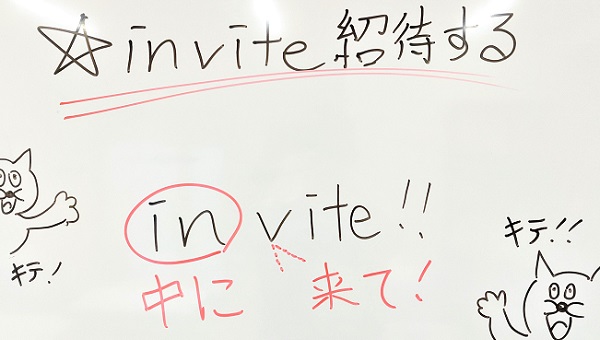 ☆invite 招待する
invite!!
中に 来て!
キテ!
キテ!!